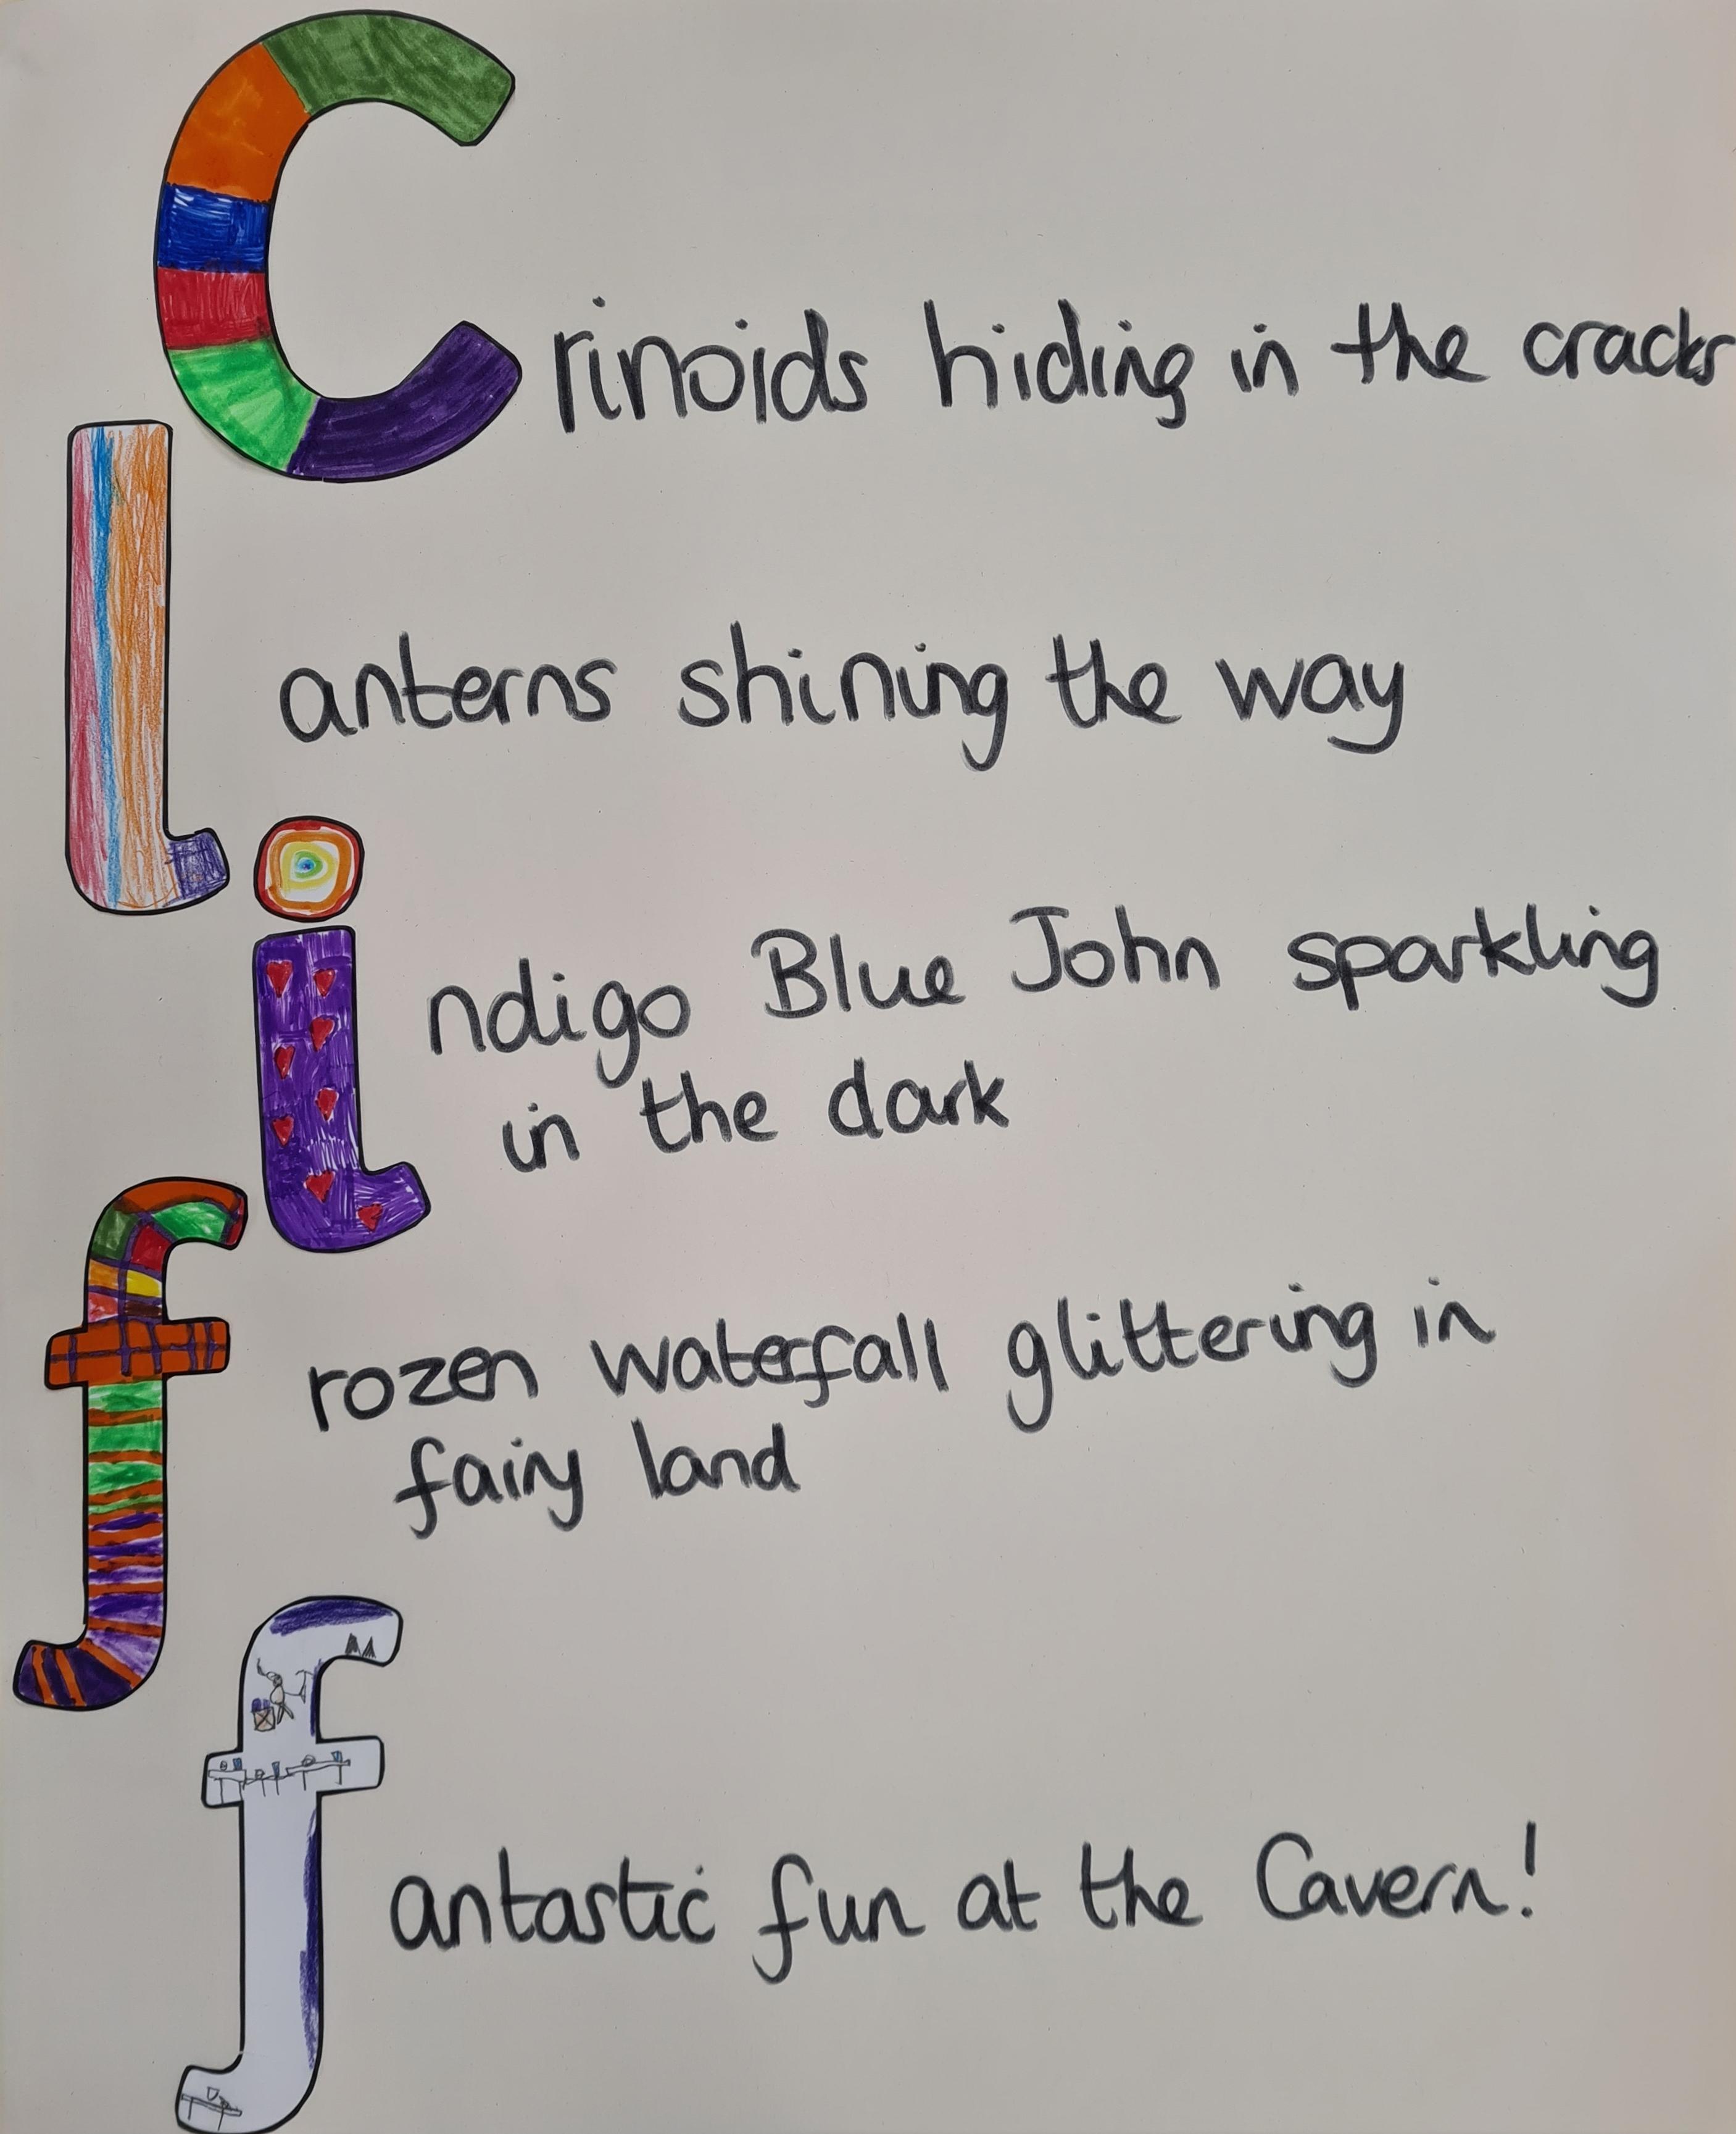 Crinoids hiding in the cracks
lanterns shining the way
indigo Blue John sparkling
in the dark
frozen waterfall glittering in
fairy land
fantastic fun at the Cavern!